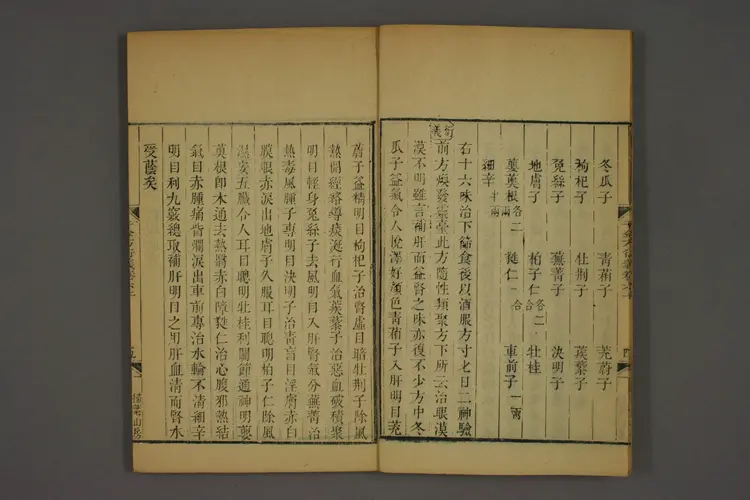 冬瓜子 青葙子 茺蔚子
枸杞子 牡荆子 蒺蔾子
兔絲子 蕪菁子 決明子
地膚子 柏子仁各二合 牡桂
蕤仁一合 車前子一兩
細辛
右十六味治下篩食後以酒服方寸七日二神驗
前方煥發靈臺此方隨性類聚方下所云治䀮
漠不明雖言補肝而益腎之味亦復不少方中冬
瓜子益氣令人悅澤好顏色青葙子入肝明目茺
蔚子益精明目枸杞子治腎虛目暗牡荆子除風
熱開經絡導痰涎行血氣蒺蔾子治惡血破積聚
明目輕身兔絲子去風明目入肝腎氣分蕪菁治
熱毒風腫子專明目決明子治青盲目淫膚赤白
膜眼赤淚出地膚子久服耳目聰明柏子仁除風
濕安五臟令人耳目聰明牡桂利關節通神明蘡
薁根卽木通去熱翳赤白障蕤仁治心腹邪熱結
氣目赤腫痛眥爛淚出車前專治水輪不清細辛
明目利九竅總取補肝明目之用肝血清而腎水
受蔭矣
五
掃葉山房
四